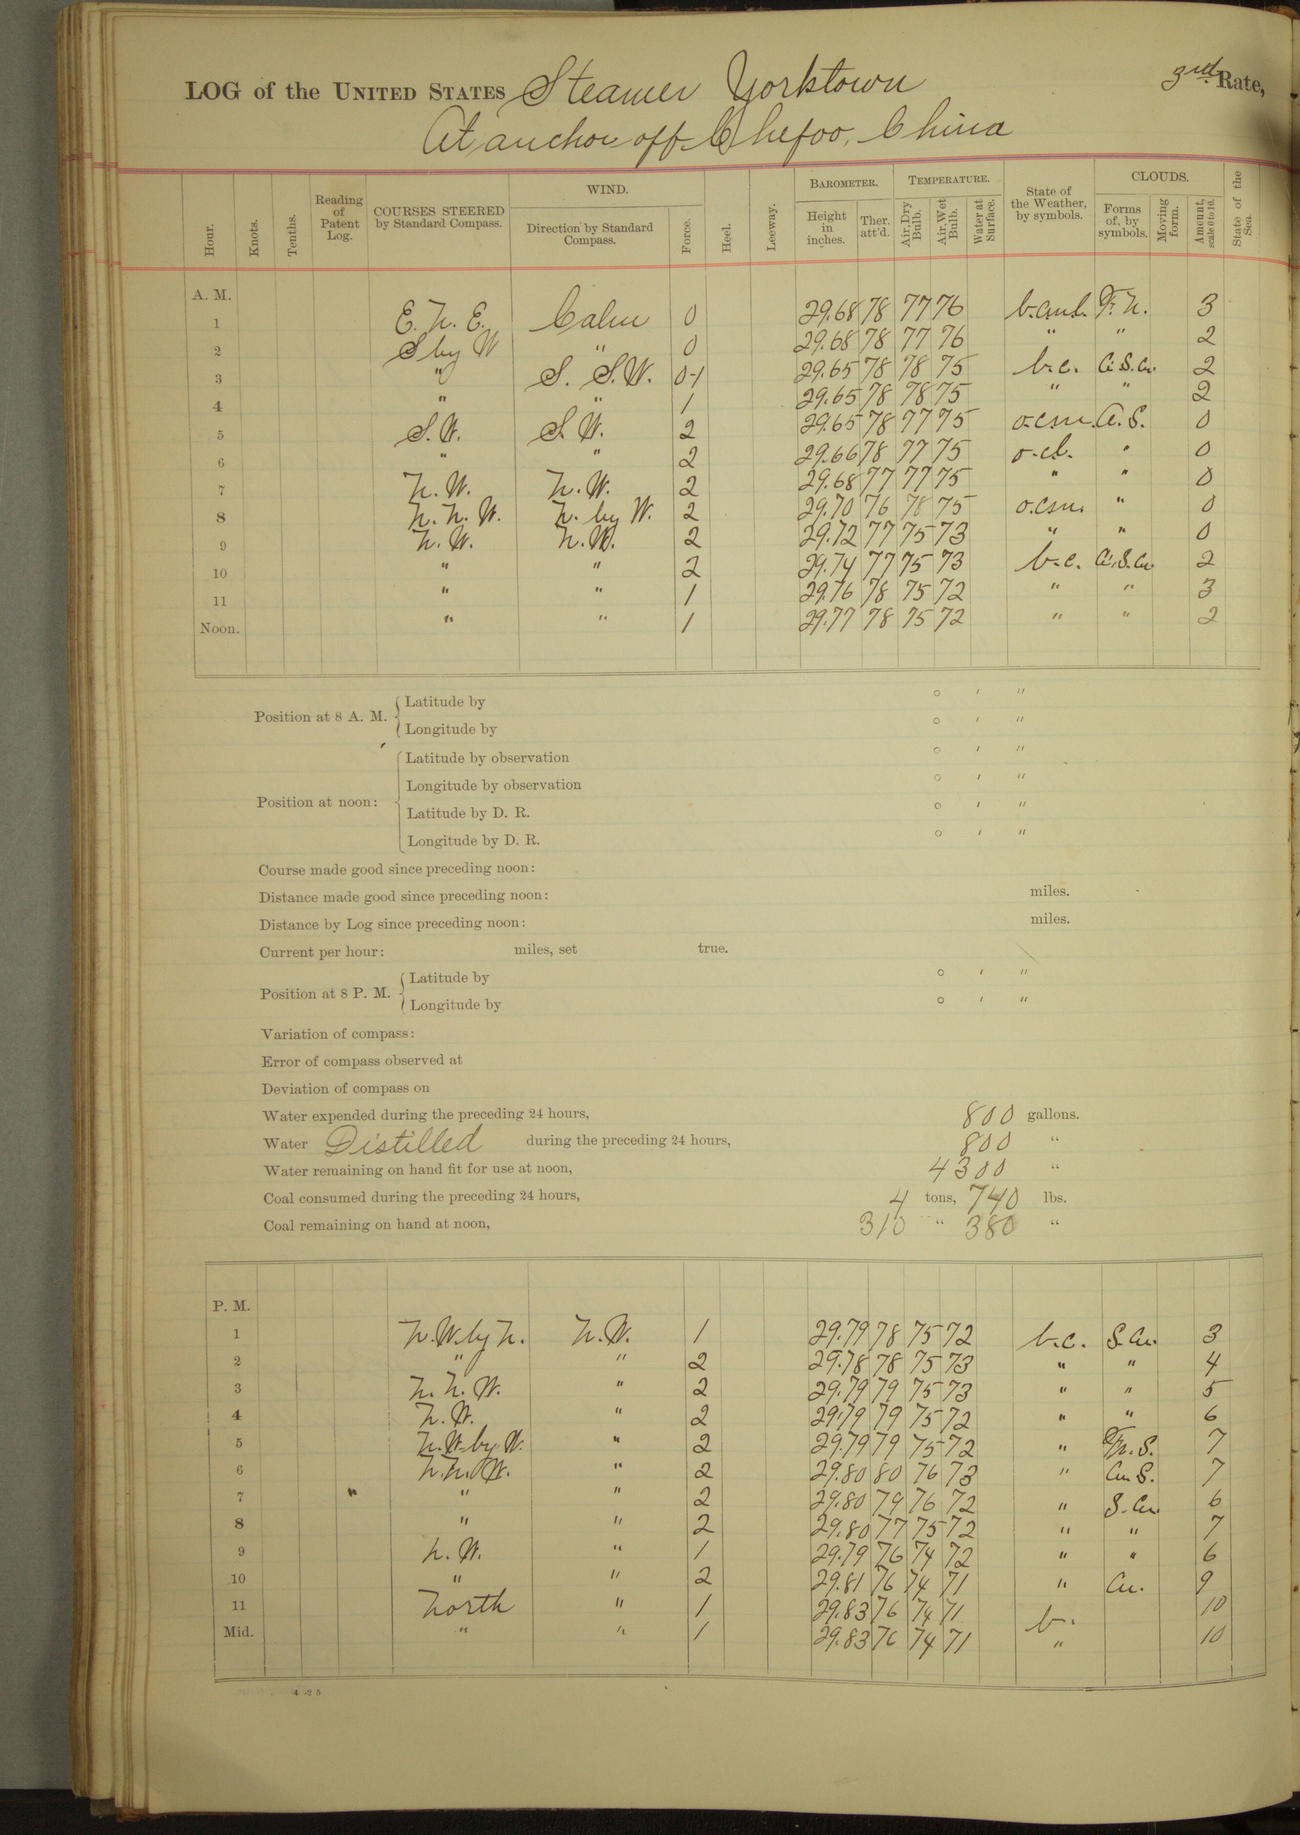 LOG of the UNITED STATES Steamer Yorktown 3rd Rate,
At anchor off Chefoo, China
Hour. Knots. Tenths. Reading of Patent Log. COURSES STEERED by Standard Compass. WIND. Direction by Standard Compass. Force. Heel. Leeway. BAROMETER. Height in inches. Ther. att'd. TEMPERATURE. Air, Dry Bulb. Air, Wet Bulb. Water at Surface. State of the Weather, by symbols. CLOUDS. Forms of, by symbols. Moving form. Amount, scale 0 to 10. State of the Sea.
A. M.
1 E. N. E. Calm 0 29.68 78 77 76 b.c.m.l. 3
2 S by W " 0 29.68 78 77 76 " " 2
3 " S. S.W. 0-1 29.65 78 78 75 b.c. Ci.S.Cu. 2
4 " " 1 29.65 78 78 75 " " 2
5 S.W. S.W. 2 29.65 78 77 75 o.c.m. 0
6 " " 2 29.66 78 77 75 o.c.l. " 0
7 N.W. N.W. 2 29.68 77 77 75 " " 0
8 N.N.W. N. by W. 2 29.70 76 78 75 o.c.m. " 0
9 N.W. N.W. 2 29.72 77 75 73 " " 0
10 " " 2 29.74 77 75 73 b.c. Ci.S.Cu. 2
11 " " 1 29.76 78 75 72 " " 3
Noon. " " 1 29.77 78 75 72 " " 2
Position at 8 A. M. Latitude by ° ′ ″
Longitude by ° ′ ″
Position at noon: Latitude by observation ° ′ ″
Longitude by observation ° ′ ″
Latitude by D. R. ° ′ ″
Longitude by D. R. ° ′ ″
Course made good since preceding noon:
Distance made good since preceding noon: miles.
Distance by Log since preceding noon: miles.
Current per hour: miles, set true.
Position at 8 P. M. Latitude by ° ′ ″
Longitude by ° ′ ″
Variation of compass:
Error of compass observed at
Deviation of compass on
Water expended during the preceding 24 hours, 800 gallons.
Water Distilled during the preceding 24 hours, 800 "
Water remaining on hand fit for use at noon, 4300 "
Coal consumed during the preceding 24 hours, 4 tons, 740 lbs.
Coal remaining on hand at noon, 310 " 380 "
P. M.
1 N.W. by N. N.W. 1 29.79 78 75 72 b.c. S.Cu. 3
2 " " 2 29.78 78 75 73 " " 4
3 N.N.W. " 2 29.79 79 75 73 " " 5
4 N.W. " 2 29.79 79 75 72 " " 6
5 N.W. by W. " 2 29.79 79 75 72 " 7
6 N.N.W. " 2 29.80 80 76 73 " Cu.S. 7
7 " " " 2 29.80 79 76 72 " S.Cu. 6
8 " " 2 29.80 77 75 72 " " 7
9 N.W. " 1 29.79 76 74 72 " " 6
10 " " 2 29.81 76 74 71 " Cu. 9
11 North " 1 29.83 76 74 71 b. 10
Mid. " " 1 29.83 76 74 71 " 10
4-25